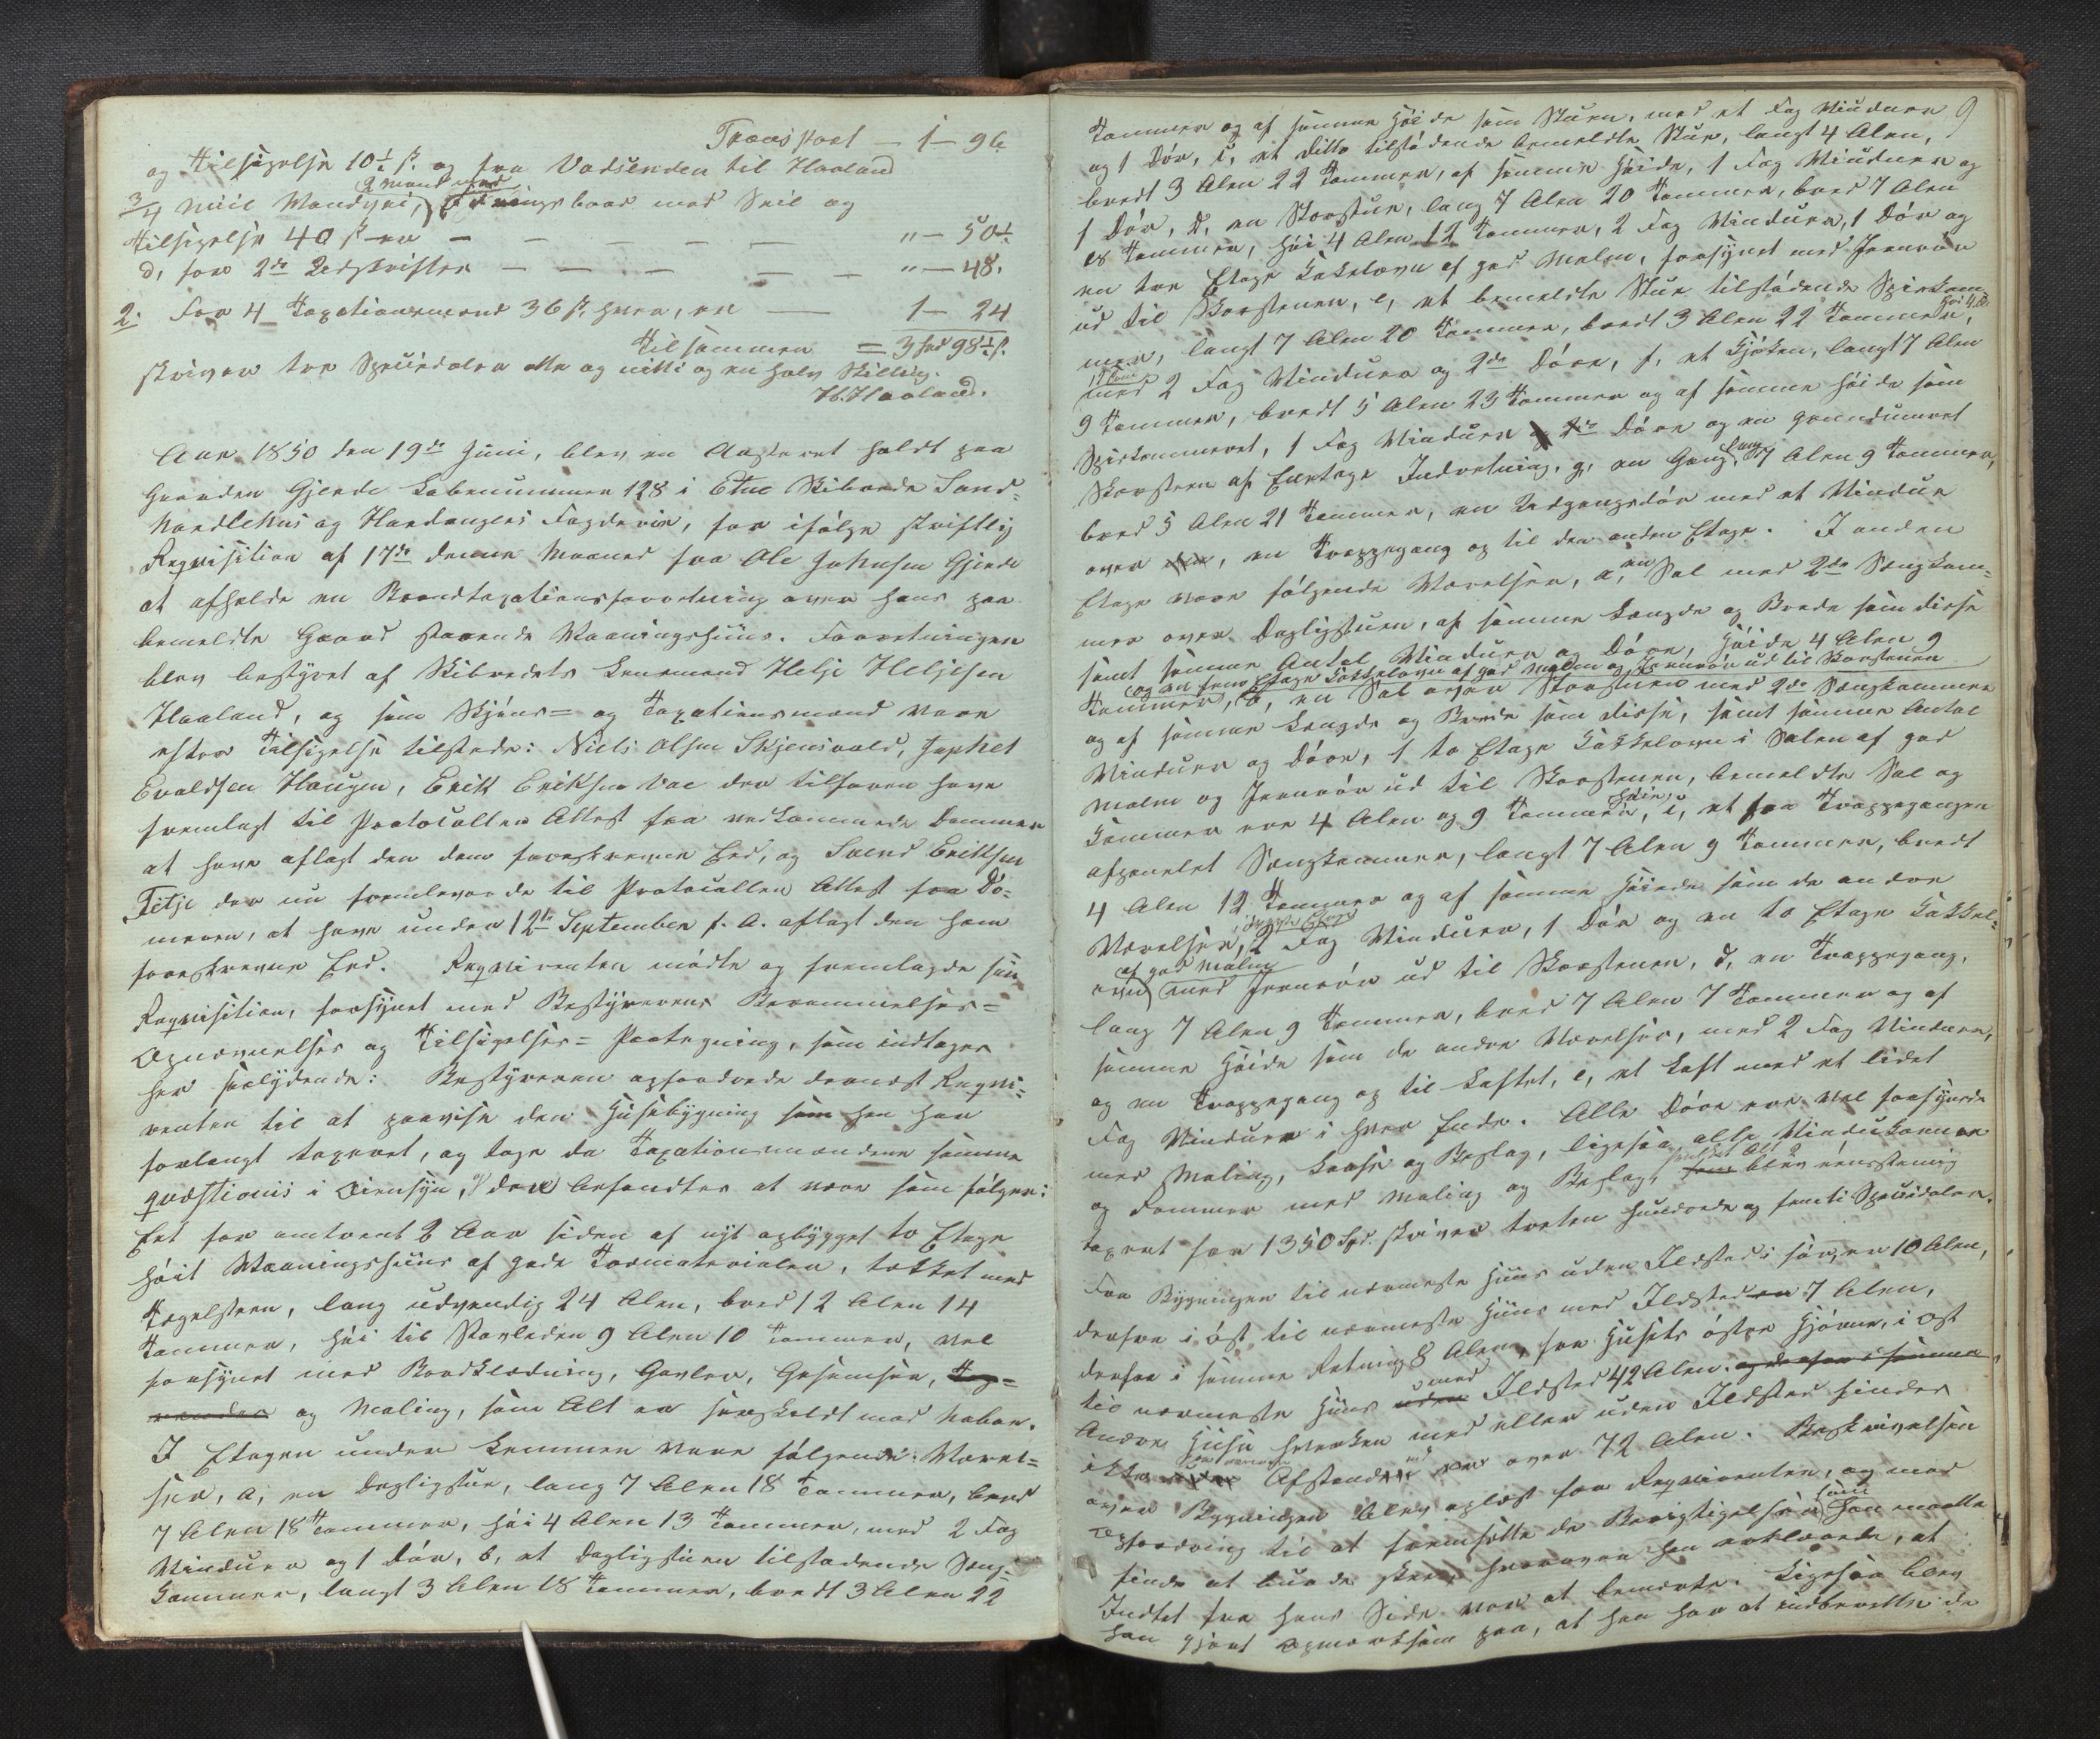 Transport — 1 — 96
og Tilsigelse 10½ ß. og fra Vadsenden til Haaland
¾ Miil Mandskei, 2 mand med Færingsbaad med Seil og
Tilsigelse 40 ß er — — — — — — " — 50½
d, for 2de Udskrifter — — — — — " — 48.
2. For 4 Taxationsmænd 36 ß. hver, er — 1 — 24
Tilsammen = 3 Spd 98½ ß.
skriver tre Speciedaler otte og nitti og en halv Skilling.
H. Haaland.
Aar 1850 den 19de Juni, blev en Aasteret holdt paa
Gaarden Gjerde Løbenummer 128 i Etne Skibrede Sønd-
hordlehns og Hardangers Fogderie, for ifølge skriftlig
Reqvisition af 17de denne Maaned fra Ole Johnsen Gjerde
at afholde en Brandtaxationsforretning over hans paa
bemeldte Gaard staaende Vaaningshuus. Forretningen
blev bestyret af Skibredets Lensmand Helje Heljesen
Haaland, og som Skjøns= og Taxationsmænd vare
efter Tilsigelse tilstede: Niels Olsen Skjensvold, Japhet
Evaldsen Haugen, Erik Eriksen Vae der tilforn have
fremlagt til Protocollen Attest fra vedkommende Dommer
at have aflagt den dem foreskrevne Eed, og Svend Eriksen
Fitje der nu fremleverede til Protocollen Attest fra Do-
meren, at have under 12te September f. A. aflagt den ham
foreskrevne Eed. Reqvirenten mødte og fremlagde sin
Reqvisition, forsynet med Bestyrerens Berammelses=
Opnævnelses og Tilsigelses= Paategning, som indtages
her saalydende: Bestyreren opfordrede dernæst Reqvi-
renten til at paavise den Huusebygning som han har
forlangt taxeret, og toge da Taxationsmændene samme
qvæstionis i Øiensyn, og den befandtes at være som følger:
Et for omtrent 2 Aar siden af nyt opbygget to Etage
høit Vaaningshuus af gode Tørmaterialer, tækket med
Tegelsteen, lang udvendig 24 Alen, bred 12 Alen 14
Tommer, høi til Stavleden 9 Alen 10 Tommer, vel
forsynet med Bordklædning, Gavler, Gesimser, Tag=
render og Maling, som Alt er henholdt med Naboer.
I Etagen under Lemmen vare følgende Værel=
ser, a, en Dagligstue, lang 7 Alen 18 Tommer, bred
7 Alen 18 Tommer, høi 4 Alen 13 Tommer, med 2 Fag
Vinduer og 1 Dør, b, et Dagligstuen tilstødende Seng-
kammer, langt 3 Alen 18 Tommer, bredt 3 Alen 22
9
Tommer og af samme Høide som Stuen, med et Fag Vinduer
og 1 Dør, c, et ditto tilstødende bemeldte Stue, langt 4 Alen,
bredt 3 Alen 22 Tommer, af samme Høide, 1 Fag Vinduer og
1 Dør, d, en Storstue, lang 7 Alen 20 Tommer, bred 7 Alen
18 Tommer, høi 4 Alen 12 Tommer, 2 Fag Vinduer, 1 Dør og
en tre Etage Kakelovn af god Malm, forsynet med Jernrør
ud til Skorstenen, e, et bemeldte Stue tilstødende Spisekam-
mer, langt 7 Alen 20 Tommer, bredt 3 Alen 22 Tommer, høi 4 Al.
12 Tom. med 2 Fag Vinduer og 2de Døre, f, et Kjøken, langt 7 Alen
9 Tommer, bredt 5 Alen 23 Tommer og af samme Høide som
Spisekammeret, 1 Fag Vinduer og 2de Døre og en grundmuret
Skorsteen af Eentags Indretning, g, en Gang, lang 7 Alen 9 Tommer,
bred 5 Alen 21 Tommer, en Udgangsdør med et Vindue
over den, en Trappegang op til den anden Etage. I anden
Etage vare følgende Værelser, a, en Sal med 2de Sengkam-
mer over Dagligstuen, af samme Længde og Brede som disse
samt samme Antal Vinduer og Døre, Høide 4 Alen 9
Tommer, og en trens Etage Kakkelovn af god Malm og Jernrør ud til Skorstenen
b, en Sal over Storstuen med 2de Sængkammere
og af samme Længde og Brede som disse, samt samme Antal
Vinduer og Døre, 1 to Etage Kakkelovn i Salen af god
Malm og Jernrør ud til Skorstenen, bemeldte Sal og
Kammer ere 4 Alen og 9 Tommer høie, c, et fra Trappegangen
afpanelet Sengkammer, langt 7 Alen 9 Tommer, bredt
4 Alen 12 Tommer og af samme Høide som de andre
Værelser, i denne Etage 2 Fag Vinduer, 1 Dør og en to Etage Kakkel-
ovn af god Malm med Jernrør ud til Skorstenen, d, en Trappegang,
lang 7 Alen 9 Tommer, bred 7 Alen 7 Tommer og af
samme Høide som de andre Værelser, med 2 Fag Vinduer,
og en Trappegang op til Loftet, e, et Loft med et lidet
Fag Vinduer i hver Ende. Alle Døre ere vel forsynede
med Maling, Laase og Beslag, ligesaa alle Vindukarmene
og Rammer med Maling og Beslag, hvilket Alt som blev eensstemmig
taxeret for 1350 Spd. skriver tretten hundrede og femti Speciedaler.
Fra Bygningen til nærmeste Huus uden Ildsted i Sør, er 10 Alen,
derfra i øst til nærmeste Huus med Ildsted er 7 Alen,
derfra i samme Retning 8 Alen, fra Husets østre Hjørne, i øst
til nærmeste Huus uden med Ildsted 42 Alen. og derfra i samme
Andre Huse hverken med eller uden Ildsted findes
ikke Afstand over 72 Alen. Beskrivelsen
over Bygningen blev oplæst for Reqvirenten, og med
Opfordring til at fremsætte de Berigtigelser som han maatte
finde at burde skee, hvorover han erklærede, at
Intet fra hans Side var at bemærke. Ligesaa blev
han gjort opmærksom paa, at han har at indberette de